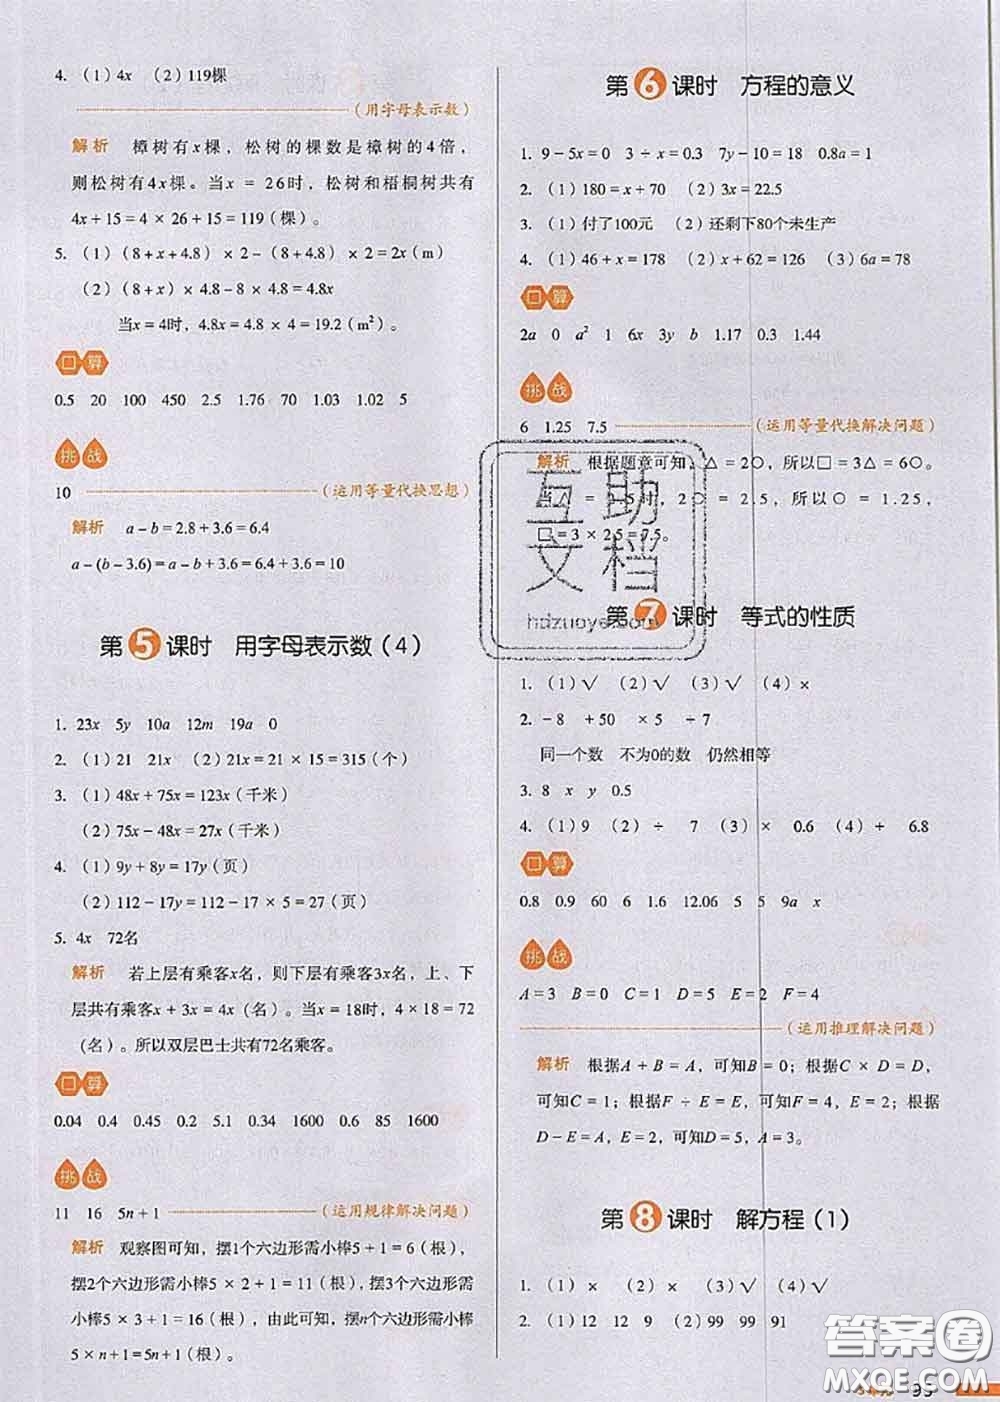 4. （1）4x （2）119棵
（用字母表示数）
解析 樟树有x棵，松树的棵数是樟树的4倍，
则松树有4x棵。当x = 26时，松树和梧桐树共有
4x + 15 = 4 × 26 + 15 = 119（棵）。
5. （1）（8 + x + 4.8） × 2 -（8 + 4.8） × 2 = 2x（m）
（2）（8 + x）× 4.8 - 8 × 4.8 = 4.8x
当x = 4时，4.8x = 4.8 × 4 = 19.2（m²）。
口算
0.5 20 100 450 2.5 1.76 70 1.03 1.02 5
挑战
10 （运用等量代换思想）
解析 a - b = 2.8 + 3.6 = 6.4
a -（b - 3.6）= a - b + 3.6 = 6.4 + 3.6 = 10
第5课时 用字母表示数（4）
1. 23x 5y 10a 12m 19a 0
2. （1）21 21x （2）21x = 21 × 15 = 315（个）
3. （1）48x + 75x = 123x（千米）
（2）75x - 48x = 27x（千米）
4. （1）9y + 8y = 17y（页）
（2）112 - 17y = 112 - 17 × 5 = 27（页）
5. 4x 72名
解析 若上层有乘客x名，则下层有乘客3x名，上、下
层共有乘客x + 3x = 4x（名）。当x = 18时，4 × 18 = 72
（名）。所以双层巴士共有72名乘客。
口算
0.04 0.4 0.45 0.2 5.1 0.34 1600 0.6 85 1600
挑战
11 16 5n + 1 （运用规律解决问题）
解析 观察图可知，摆1个六边形需小棒5 + 1 = 6（根），
摆2个六边形需小棒5 × 2 + 1 = 11（根），摆3个六边形需小棒
5 × 3 + 1 = 16（根），由此可知，摆n个六边形需小棒
5 × n + 1 = 5n + 1（根）。
第6课时 方程的意义
1. 9 - 5x = 0 3 ÷ x = 0.3 7y - 10 = 18 0.8a = 1
2. （1）180 = x + 70 （2）3x = 22.5
3. （1）付了100元 （2）还剩下80个未生产
4. （1）46 + x = 178 （2）x + 62 = 126 （3）6a = 78
口算
2a 0 a² 1 6x 3y b 1.17 0.3 1.44
挑战
6 1.25 7.5 （运用等量代换解决问题）
解析 根据题意可知，△ = 2○，所以□ = 3△ = 6○。
当△ = 2.5时，2○ = 2.5，所以○ = 1.25，
□ = 3 × 2.5 = 7.5。
互助
文档
hdzuoye.com
第7课时 等式的性质
1. （1）√ （2）√ （3）√ （4）×
2. - 8 + 50 × 5 ÷ 7
同一个数 不为0的数 仍然相等
3. 8 x y 0.5
4. （1）9 （2）÷ 7 （3）× 0.6 （4）+ 6.8
口算
0.8 0.9 60 6 1.6 12.06 5 5 9a x
挑战
A = 3 B = 0 C = 1 D = 5 E = 2 F = 4
（运用推理解决问题）
解析 根据A + B = A，可知B = 0；根据C × D = D，
可知C = 1；根据F ÷ E = E，可知F = 4，E = 2；根据
D - E = A，可知D = 5，A = 3。
第8课时 解方程（1）
1. （1）× （2）× （3）√ （4）√
2. （1）12 12 9 （2）99 99 91
答案圈
MXQE.COM
95